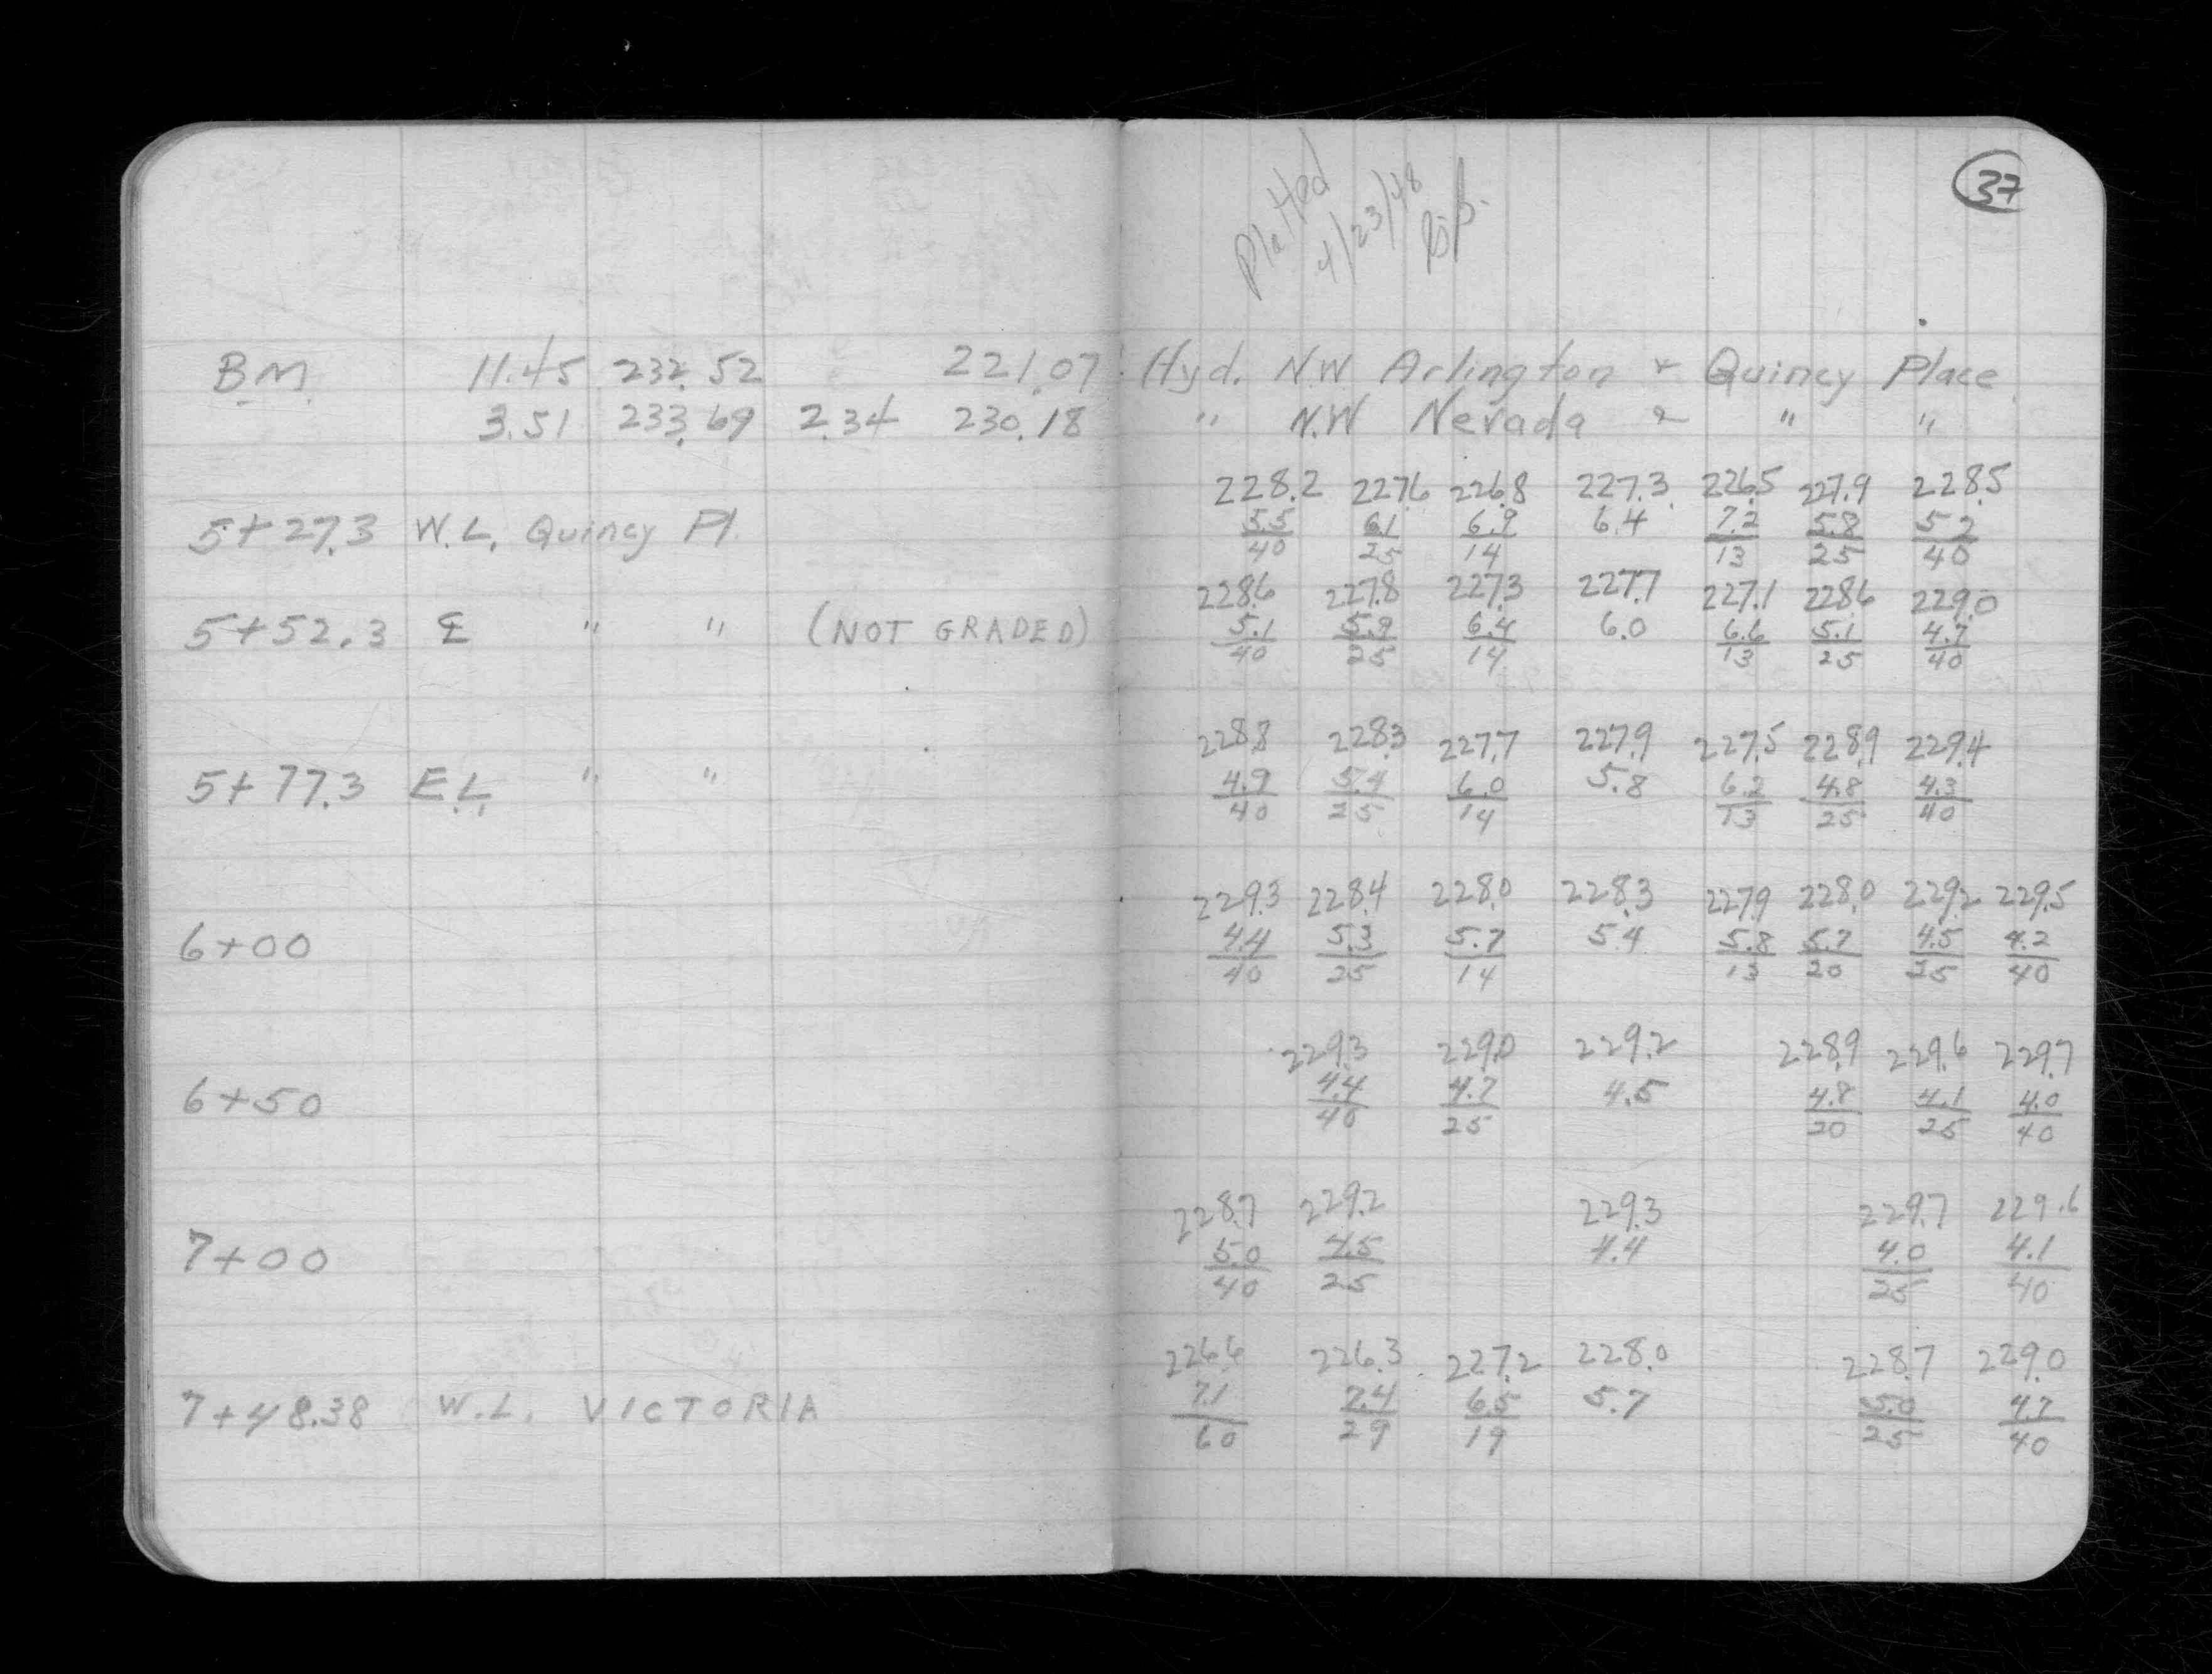 37
Plotted
4/23/48
BM 11.45 232.52 221.07 Hyd. N.W Arlington & Quincy Place
3.51 233.69 2.34 230.18 " N.W Nevada & " "
228.2 227.6 226.8 227.3 226.5 227.9 228.5
5+27.3 W.L. Quincy Pl. 5.5 6.1 6.9 6.4 7.2 5.8 5.2
40 25 14 13 25 40
228.6 227.8 227.3 227.7 227.1 228.6 229.0
5+52.3 ℄ " " (NOT GRADED) 5.1 5.9 6.4 6.0 6.6 5.1 4.7
40 25 14 13 25 40
228.8 228.3 227.7 227.9 227.5 228.9 229.4
5+77.3 E.L. " " 4.9 5.4 6.0 5.8 6.2 4.8 4.3
40 25 14 13 25 40
229.3 228.4 228.0 228.3 227.9 228.0 229.2 229.5
6+00 4.4 5.3 5.7 5.4 5.8 5.7 4.5 4.2
40 25 14 13 20 25 40
229.3 229.0 229.2 228.9 229.6 229.7
6+50 4.4 4.7 4.5 4.8 4.1 4.0
40 25 20 25 40
228.7 229.2 229.3 229.7 229.6
7+00 5.0 4.5 4.4 4.0 4.1
40 25 25 40
226.6 226.3 227.2 228.0 228.7 229.0
7+48.38 W.L. VICTORIA 7.1 7.4 6.5 5.7 5.0 4.7
60 29 19 25 40